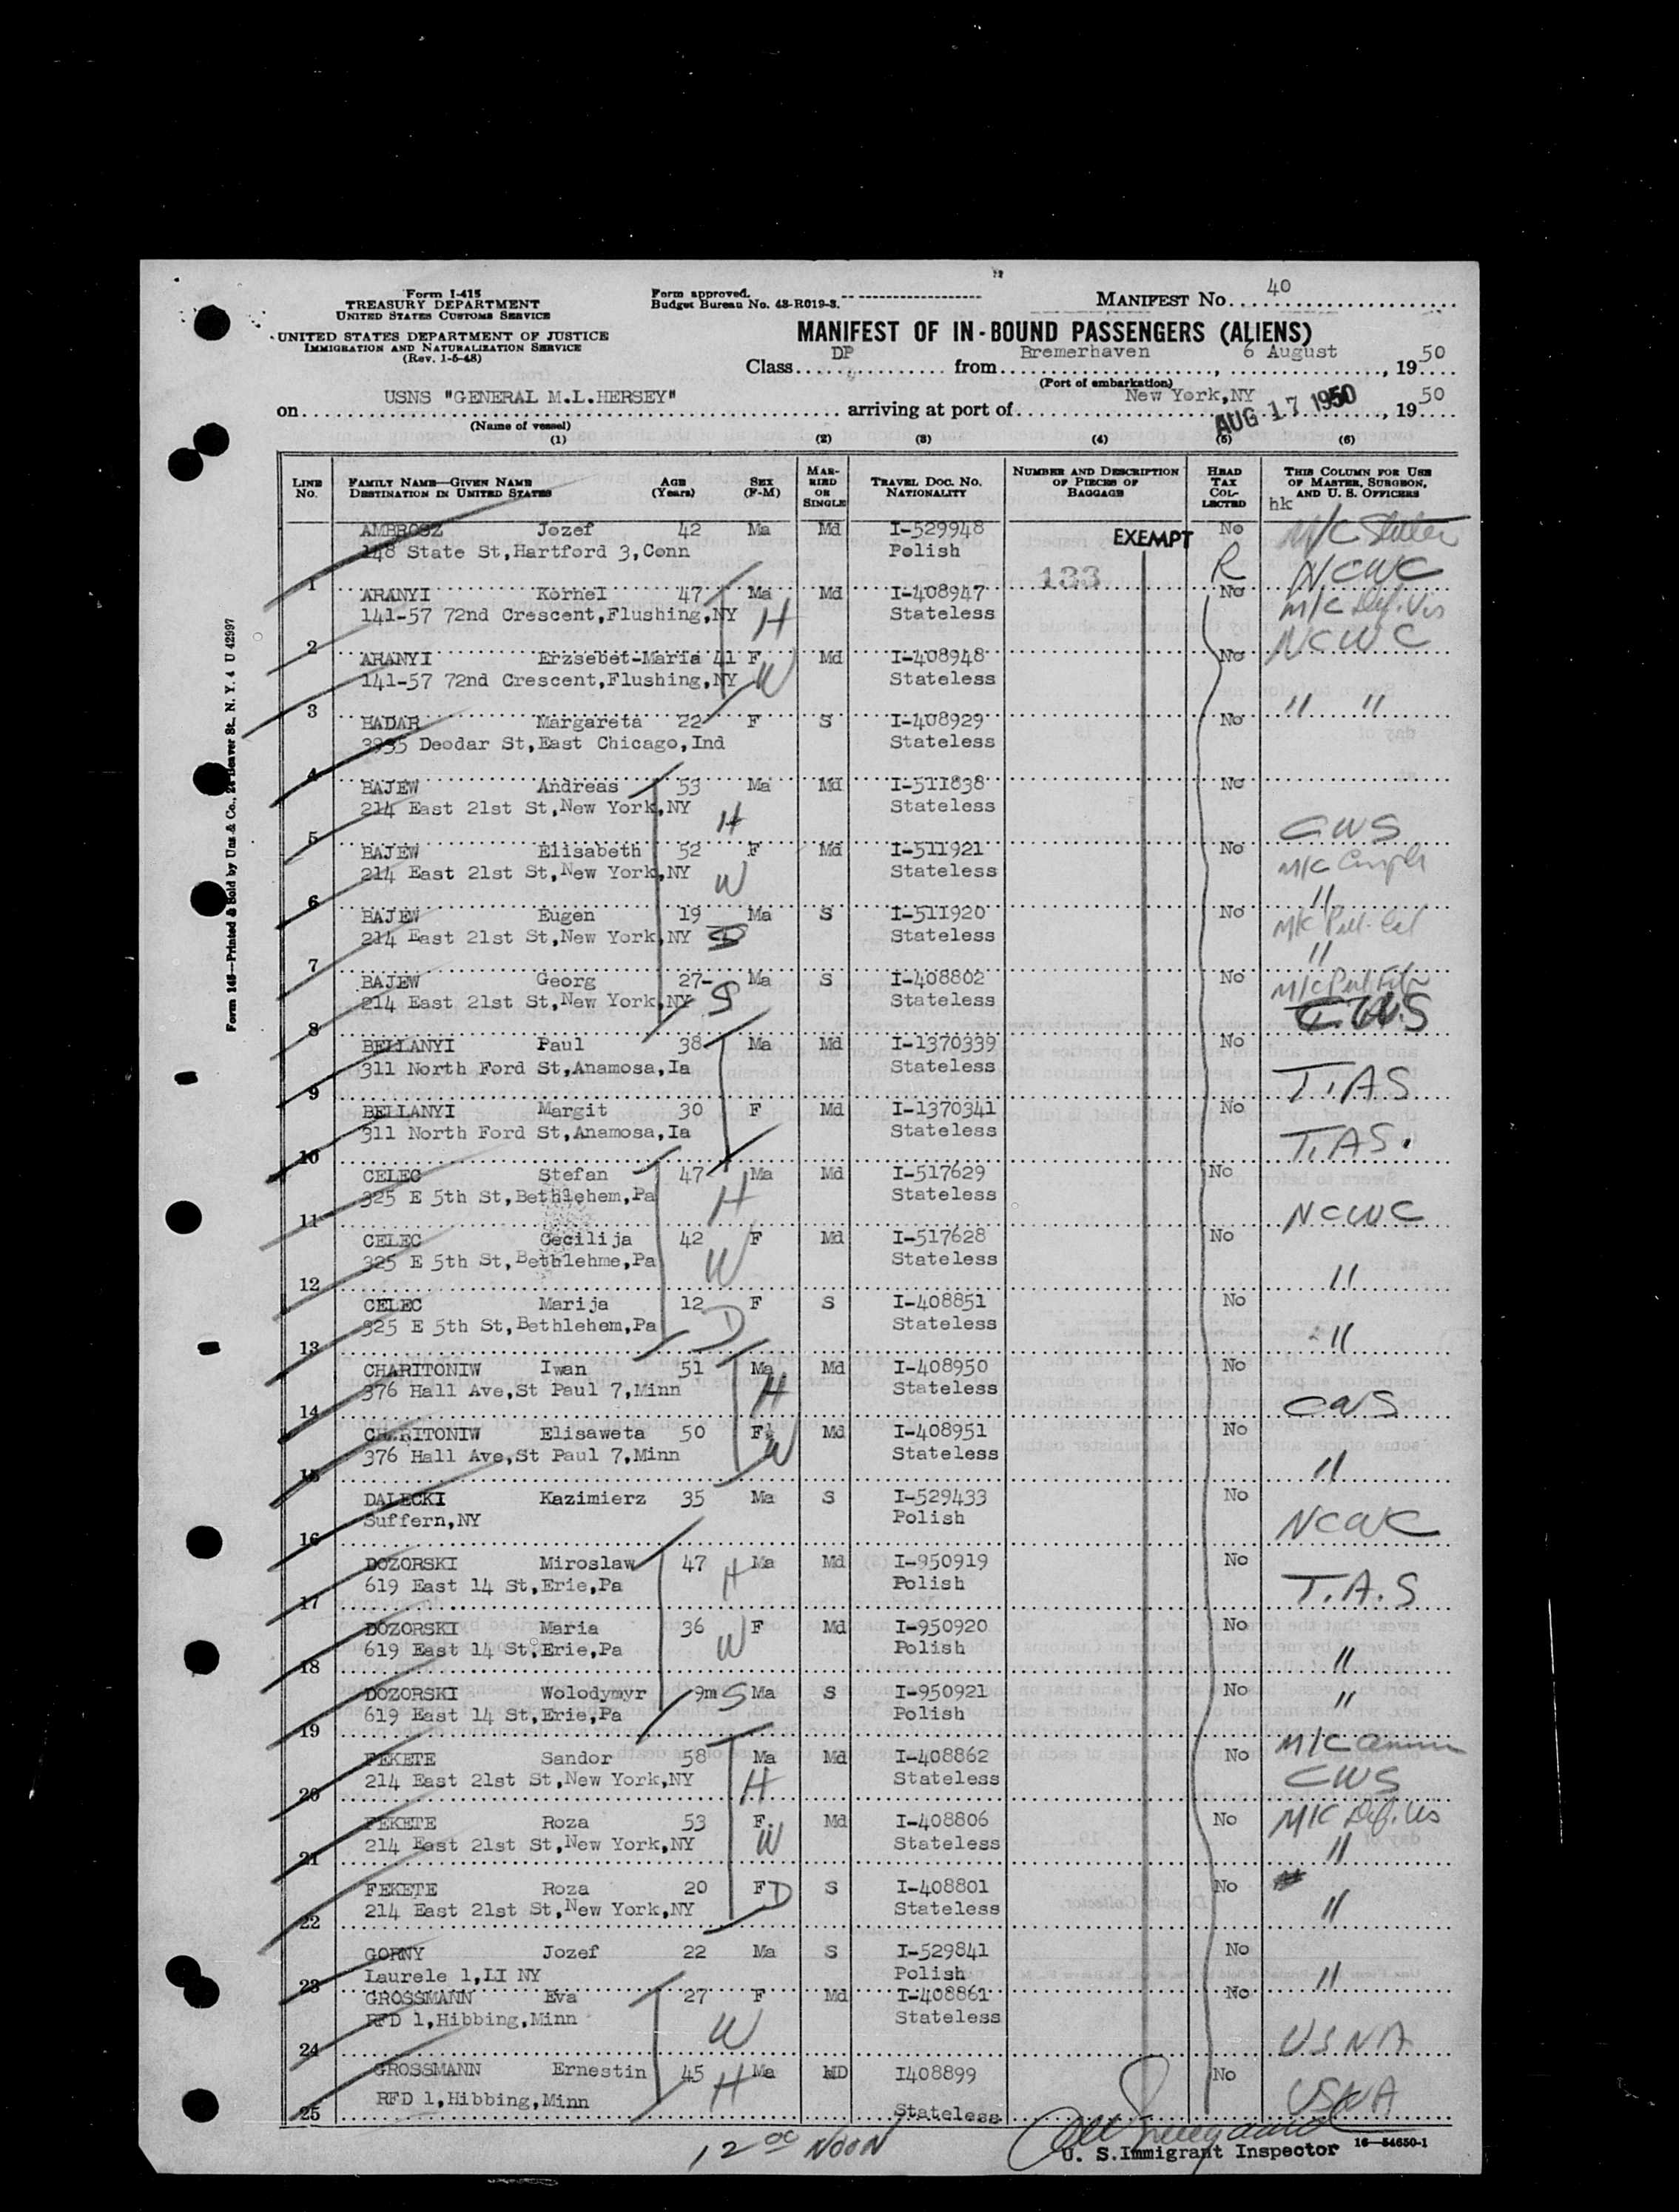 Form I-415
TREASURY DEPARTMENT
UNITED STATES CUSTOMS SERVICE
UNITED STATES DEPARTMENT OF JUSTICE
IMMIGRATION AND NATURALIZATION SERVICE
(Rev. 1-5-48)
Form approved.
Budget Bureau No. 43-R019-3.
MANIFEST No. 40
MANIFEST OF IN-BOUND PASSENGERS (ALIENS)
Class DP from Bremerhaven, 6 August, 1950
(Port of embarkation)
on USNS "GENERAL M.L.HERSEY" arriving at port of New York,NY AUG 17 1950, 1950
(Name of vessel)
(1) (2) (3) (4) (5) (6)
LINE No. FAMILY NAME—GIVEN NAME DESTINATION IN UNITED STATES AGE (Years) SEX (F-M) MARRIED OR SINGLE TRAVEL DOC. No. NATIONALITY NUMBER AND DESCRIPTION OF PIECES OF BAGGAGE HEAD TAX COLLECTED THIS COLUMN FOR USE OF MASTER, SURGEON, AND U. S. OFFICERS
hk
AMBROSZ Jozef 42 Ma Md I-529948 EXEMPT No M/C
1 148 State St,Hartford 3,Conn Polish 133 R NCWC
ARANYI Kornel 47 Ma Md I-408947 No M/C Def. Vis
2 141-57 72nd Crescent,Flushing,NY H Stateless NCWC
ARANYI Erzsebet-Maria 41 F Md I-408948 No
3 141-57 72nd Crescent,Flushing,NY W Stateless " "
BADAR Margareta 22 F S I-408929 No
4 3935 Deodar St,East Chicago,Ind Stateless
BAJEW Andreas 53 Ma Md I-511838 No
5 214 East 21st St,New York,NY H Stateless CWS
BAJEW Elisabeth 52 F Md I-511921 No M/C
6 214 East 21st St,New York,NY W Stateless "
BAJEW Eugen 19 Ma S I-511920 No M/C
7 214 East 21st St,New York,NY S Stateless "
BAJEW Georg 27 Ma S I-408802 No M/C
8 214 East 21st St,New York,NY S Stateless CWS
BELLANYI Paul 38 Ma Md I-1370339 No
9 311 North Ford St,Anamosa,Ia Stateless T.A.S
BELLANYI Margit 30 F Md I-1370341 No
10 311 North Ford St,Anamosa,Ia Stateless T.AS.
CELEC Stefan 47 Ma Md I-517629 No
11 325 E 5th St,Bethlehem,Pa H Stateless NCWC
CELEC Cecilija 42 F Md I-517628 No
12 325 E 5th St,Bethlehme,Pa W Stateless "
CELEC Marija 12 F S I-408851 No
13 325 E 5th St,Bethlehem,Pa D Stateless "
CHARITONIW Iwan 51 Ma Md I-408950 No
14 376 Hall Ave,St Paul 7,Minn H Stateless CWS
CHARITONIW Elisaweta 50 F Md I-408951 No
15 376 Hall Ave,St Paul 7,Minn W Stateless "
DALECKI Kazimierz 35 Ma S I-529433 No
16 Suffern,NY Polish NCWC
DOZORSKI Miroslaw 47 H Ma Md I-950919 No
17 619 East 14 St,Erie,Pa Polish T.A.S
DOZORSKI Maria 36 F Md I-950920 No
18 619 East 14 St,Erie,Pa W Polish "
DOZORSKI Wolodymyr 9m S Ma S I-950921 No "
19 619 East 14 St,Erie,Pa Polish
FEKETE Sandor 58 Ma Md I-408862 No M/C
20 214 East 21st St,New York,NY H Stateless CWS
FEKETE Roza 53 F. Md I-408806 No M/C Def. Vis
21 214 East 21st St,New York,NY W Stateless "
FEKETE Roza 20 F D S I-408801 No
22 214 East 21st St,New York,NY Stateless "
GORNY Jozef 22 Ma S I-529841 No
23 Laurele 1,LI NY Polish "
GROSSMANN Eva 27 F Md I-408861 No
24 RFD 1,Hibbing,Minn W Stateless U.S.N.A
GROSSMANN Ernestin 45 H Ma MD I408899 No
25 RFD 1,Hibbing,Minn Stateless USNA
12 00 NOON
U. S.Immigrant Inspector 16—54650-1
Form 145—Printed & Sold by Unz & Co., 24 Beaver St., N. Y. 4 U 42997